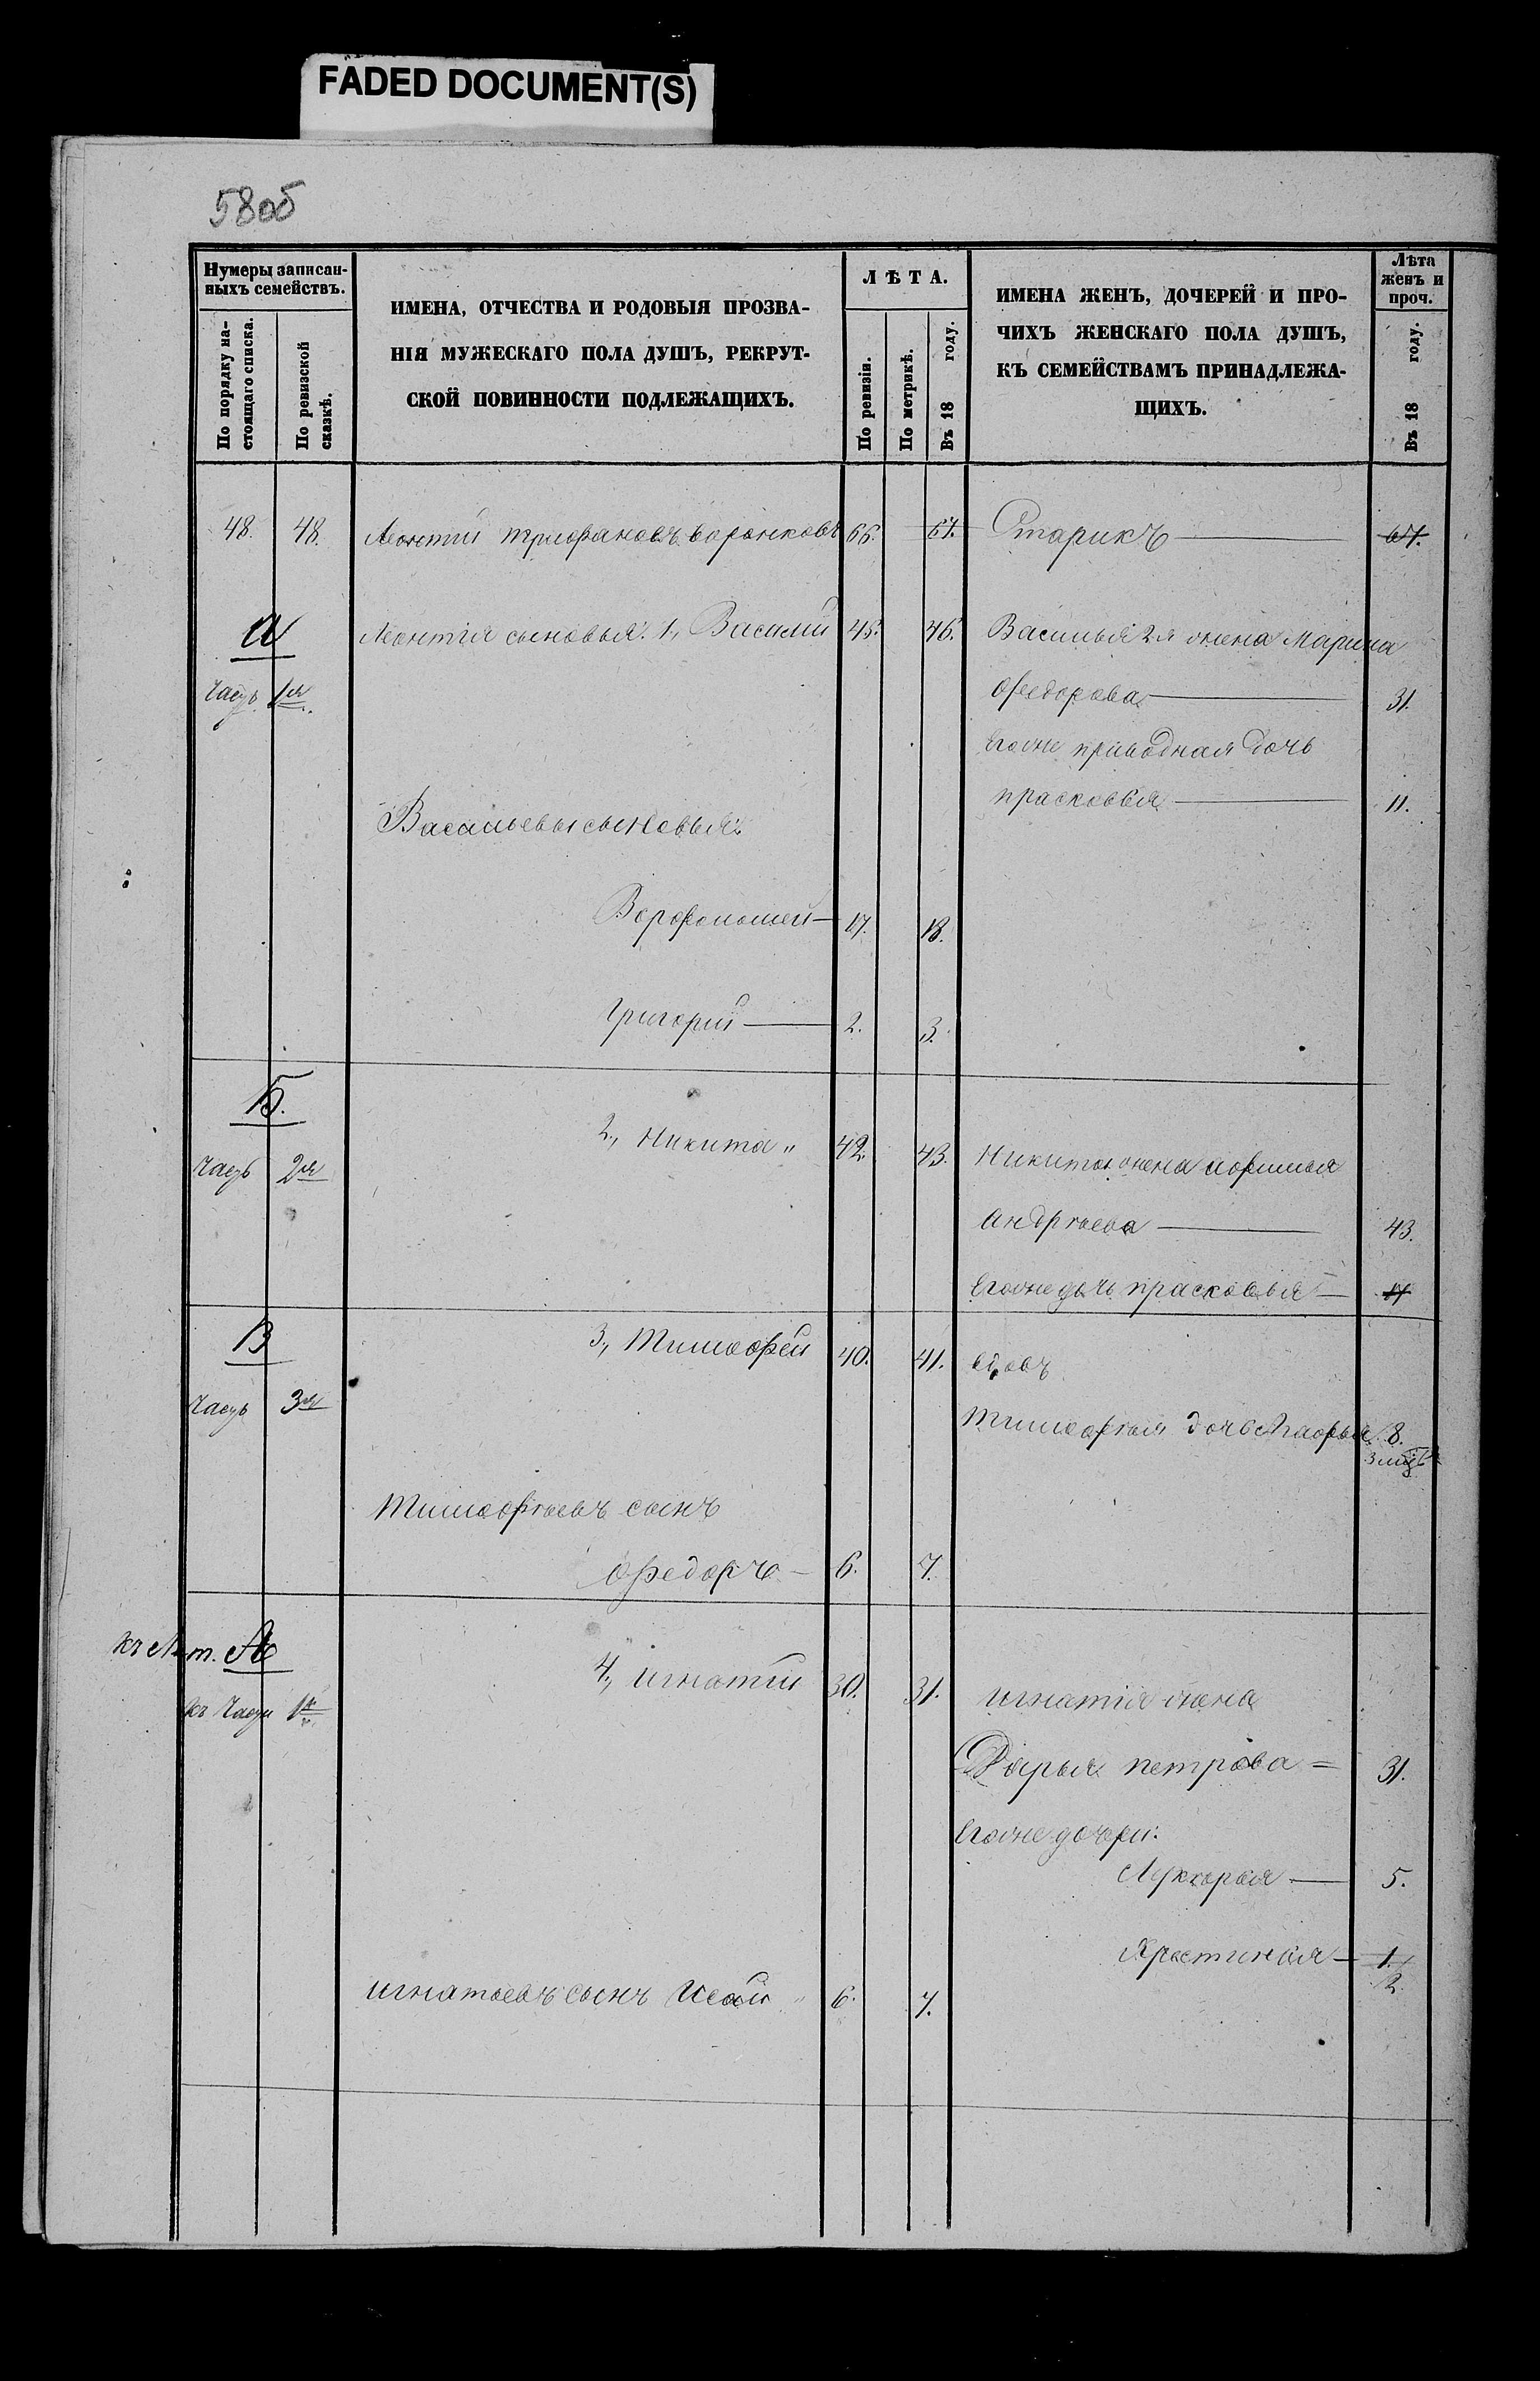 FADED DOCUMENT(S)
58об
Нумеры записан-
ныхъ семействъ.
По порядку на-
стоящаго списка.
По ревизской
сказкѣ.
ИМЕНА, ОТЧЕСТВА И РОДОВЫЯ ПРОЗВА-
НІЯ МУЖЕСКАГО ПОЛА ДУШЪ, РЕКРУТ-
СКОЙ ПОВИННОСТИ ПОДЛЕЖАЩИХЪ.
ЛѢТА.
По ревизіи.
По метрикѣ.
Въ 18 году.
ИМЕНА ЖЕНЪ, ДОЧЕРЕЙ И ПРО-
ЧИХЪ ЖЕНСКАГО ПОЛА ДУШЪ,
КЪ СЕМЕЙСТВАМЪ ПРИНАДЛЕЖА-
ЩИХЪ.
Лѣта
женъ и
проч.
Въ 18 году.
48. 48. Леонтий Трифановъ Воронковъ 66. 67. Старикъ 67.
А Леонтія сыновья: 1, Василий 45. 46. Василья 2я жена Марина
Часть 1я Федорова 31.
Егоже приводная дочь
Прасковья 11.
Васильевы сыновья:
Ворфоломей 17. 18.
Григорий 2. 3.
Б.
2, Никита 42. 43. Никиты жена Афимья
Часть 2я
Андреева 43.
Егоже дочь Прасковья 17
В 3, Тимофей 40. 41. вдовъ
Часть 3я Тимофея дочь Марья 8.
Тимофеевъ сынъ
Федоръ 6. 7.
къ Лит. А
4, Игнатий 30. 31. Игнатія жена
къ Части 1й
Дарья Петрова 31.
Егоже дочери:
Лукерья 5.
Христинья 1/2
Игнатьевъ сынъ Исай 6. 7.